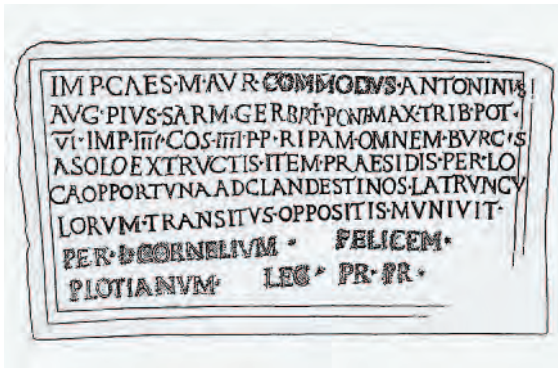 IMP·CAES·M·AVR·COMMODVS·ANTONINVS
AVG·PIVS·SARM·GER·BRIT·PONT·MAX·TRIB·POT·
VI·IMP·IIII·COS·IIII·PP·RIPAM·OMNEM·BVRG·S
A SOLO EXTRVCTIS·ITEM·PRAESIDIS·PER·LO
CA OPPORTVNA AD CLANDESTINOS·LATRVNCV
LORVM·TRANSITVS·OPPOSITIS·MVNIVIT·
PER·L·CORNELIVM· FELICEM·
PLOTIANVM· LEG· PR·PR·